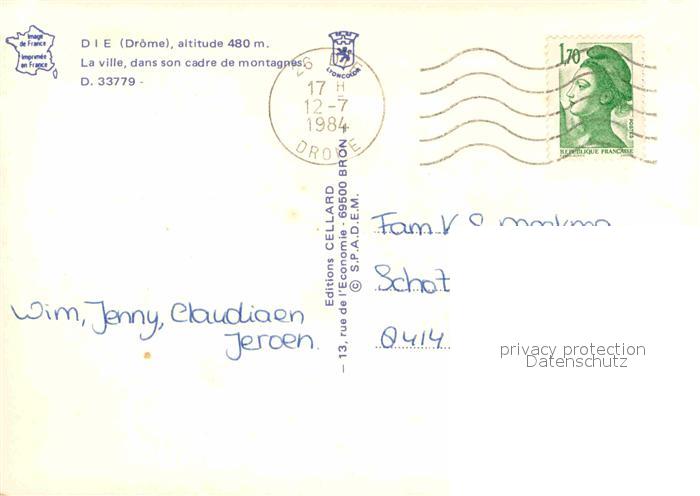 Image
de France
Imprimée
en France
DIE (Drôme), altitude 480 m.
La ville, dans son cadre de montagnes.
D. 33779 -
LYONCOLOR
26 DIE
17 H
12-7
1984
DROME
1,70
POSTES
REPUBLIQUE FRANÇAISE
Editions CELLARD
- 13, rue de l'Economie - 69500 BRON -
© S.P.A.D.E.M.
Wim, Jenny, Claudia en
Jeroen.
Fam. V
Schot
9414
privacy protection
Datenschutz